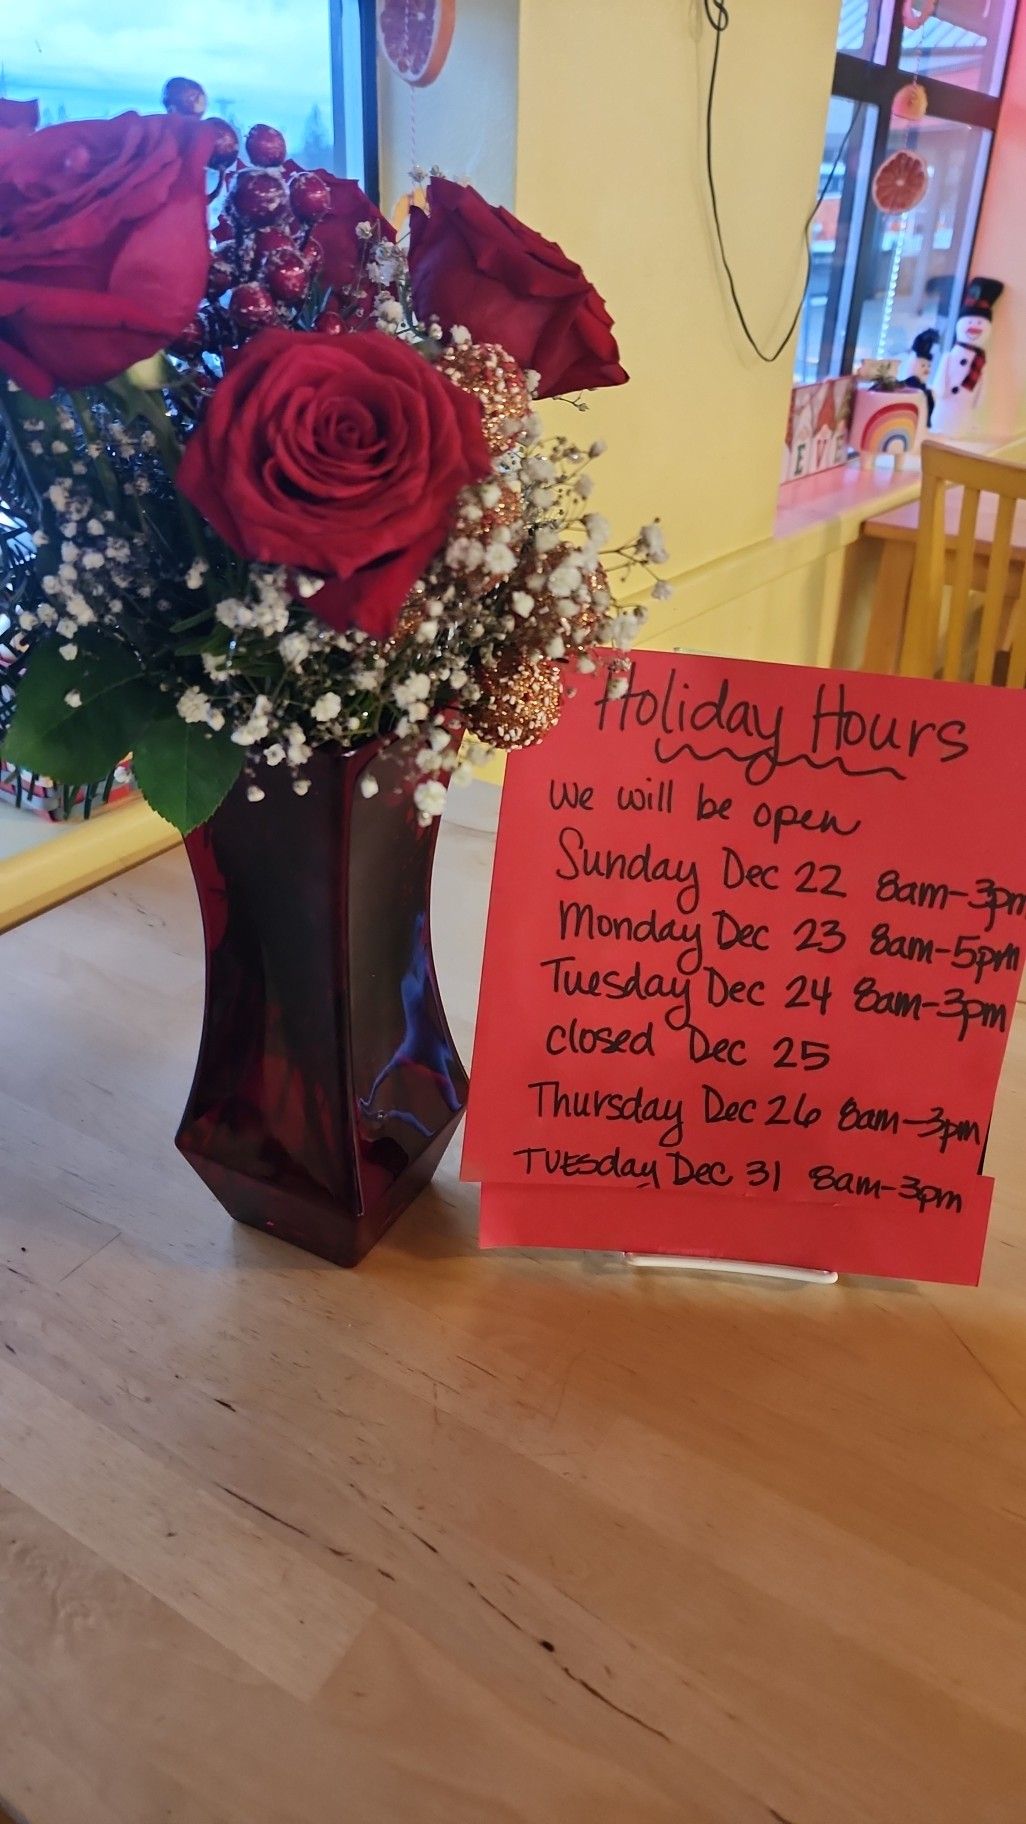 Holiday Hours
we will be open
Sunday Dec 22 8am-3pm
Monday Dec 23 8am-5pm
Tuesday Dec 24 8am-3pm
closed Dec 25
Thursday Dec 26 8am-3pm
TUESday Dec 31 8am-3pm